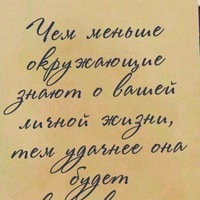 Чем меньше
окружающие
знают о вашей
личной жизни,
тем удачнее она
будет